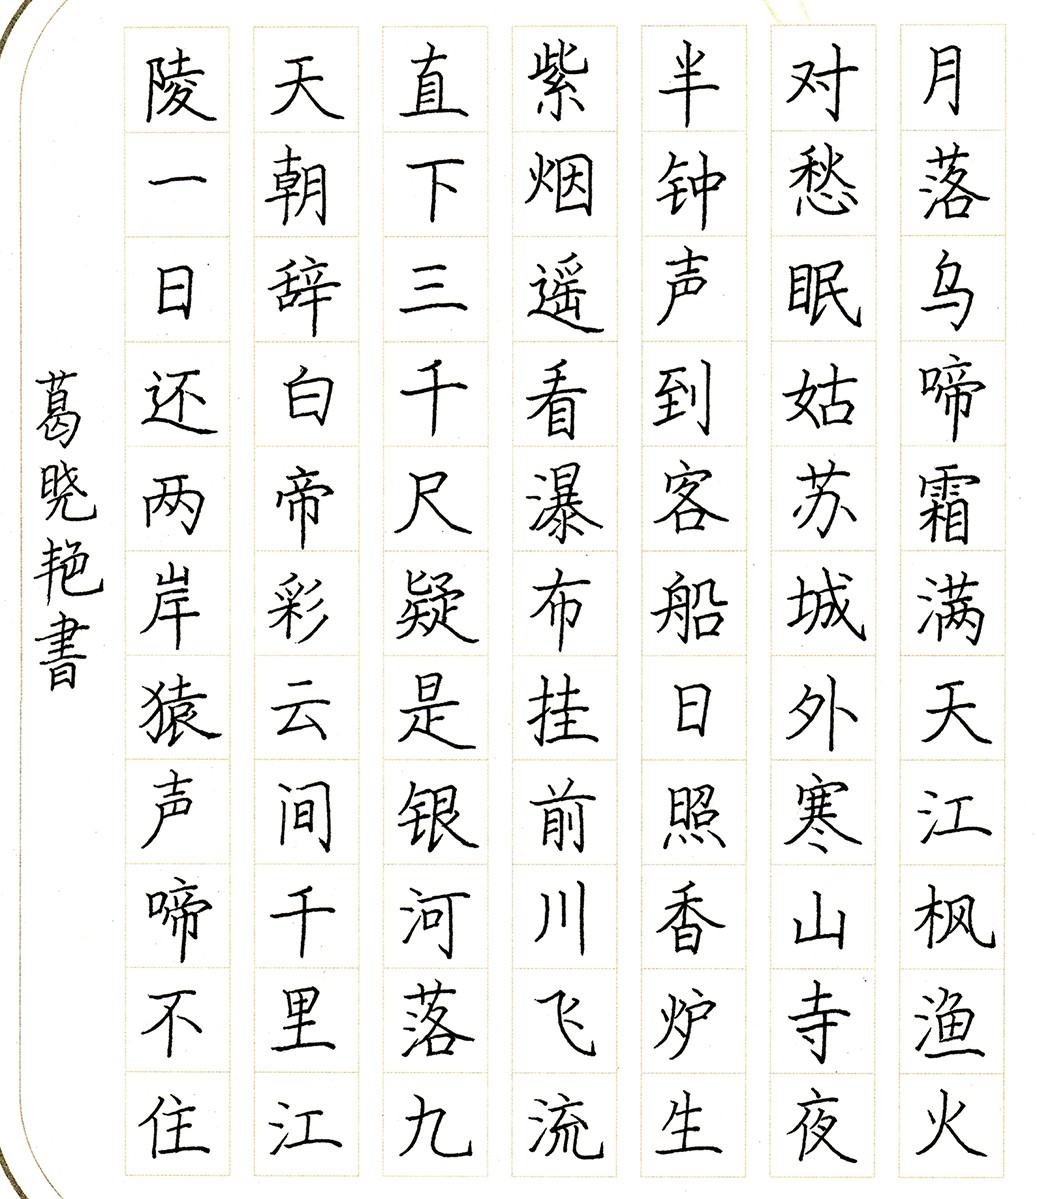 月落乌啼霜满天江枫渔火
对愁眠姑苏城外寒山寺夜
半钟声到客船日照香炉生
紫烟遥看瀑布挂前川飞流
直下三千尺疑是银河落九
天朝辞白帝彩云间千里江
陵一日还两岸猿声啼不住
葛晓艳書